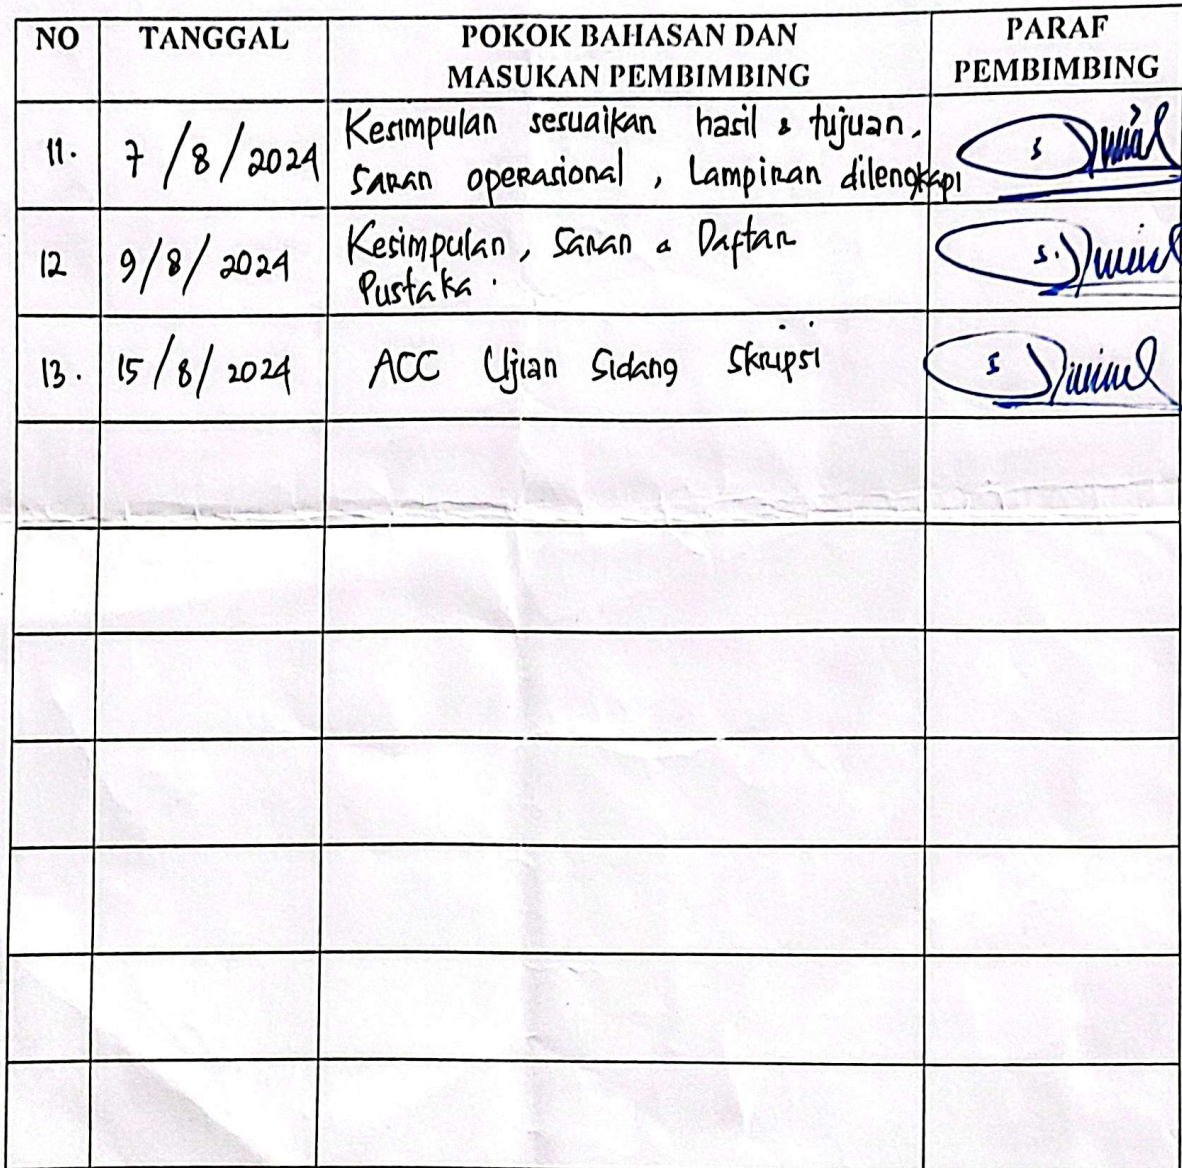 NO TANGGAL POKOK BAHASAN DAN PARAF
MASUKAN PEMBIMBING PEMBIMBING
11. 7/8/2024 Kesimpulan sesuaikan hasil & tujuan,
saran operasional, Lampiran dilengkapi
12 9/8/2024 Kesimpulan, Saran & Daftar
Pustaka.
13. 15/8/2024 ACC Ujian Sidang Skripsi